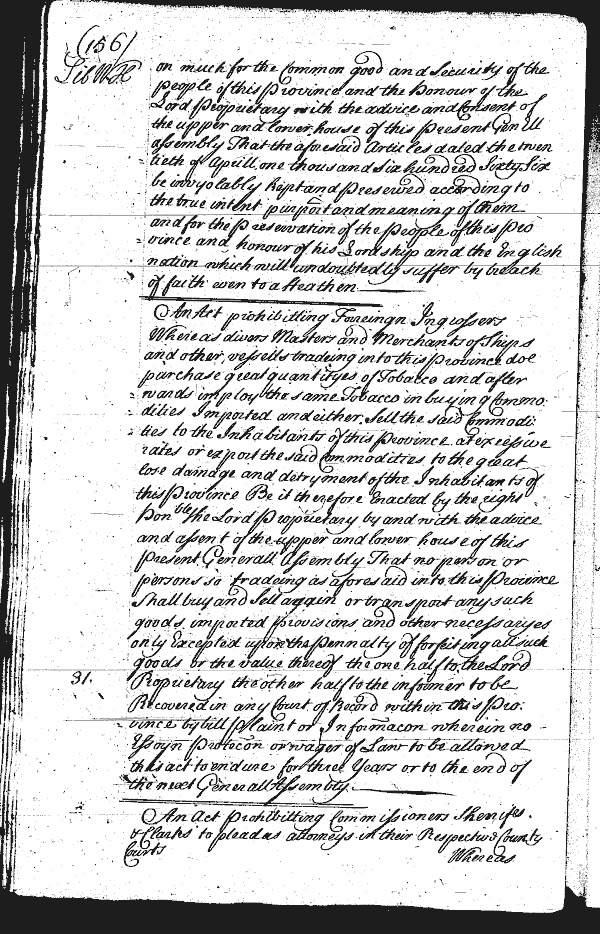 (156)
Lib W.H
on much for the Common good and Security of the
people of this Province and the honour of the
Lord Proprietary with the advice and Consent of
the upper and lower house of this Present Gen ll
assembly That the aforesaid Articles dated the twen
tieth of Aprill one thousand Six hundred Sixty Six
be invyolably kept and preserved according to
the true intent purport and meaning of them
and for the Preservation of the People of this Pro
vince and honour of his Lordship and the English
nation which will undoubtedly suffer by breach
of faith even to a Heathen
An Act prohibitting Foreingn Ingrossers
Whereas divers Masters and Merchants of Ships
and other vessells tradeing into this Province doe
purchase great quantityes of Tobacco and after
wards imploy the same Tobacco in buying Commo
dities Imported and either Sell the said Commodi
ties to the Inhabitants of this Province at excessive
rates or export the said Commodities to the great
lose damage and detryment of the Inhabitants of
this Province Be it therefore Enacted by the right
hon ble the Lord Proprietary by and with the advice
and assent of the upper and lower house of this
present Generall Assembly That no person or
persons so tradeing as aforesaid into this Province
Shall buy and Sell again or transport any such
goods imported provisions and other necessaryes
only Excepted upon the Pennalty of forfeiting all such
goods or the value thereof the one half to the Lord
31. Proprietary the other half to the informer to be
Recovered in any Court of Record within this Pro:
vince by bill plaint or Informacon wherein no
Essoyn Protecon or wager of Law to be allowed
this act to endure for three Years or to the end of
the next Generall Assembly.
An Act Prohibitting Commissioners Sherifes.
& Clarks to plead as attorneys in their Respective County
Courts
Whereas